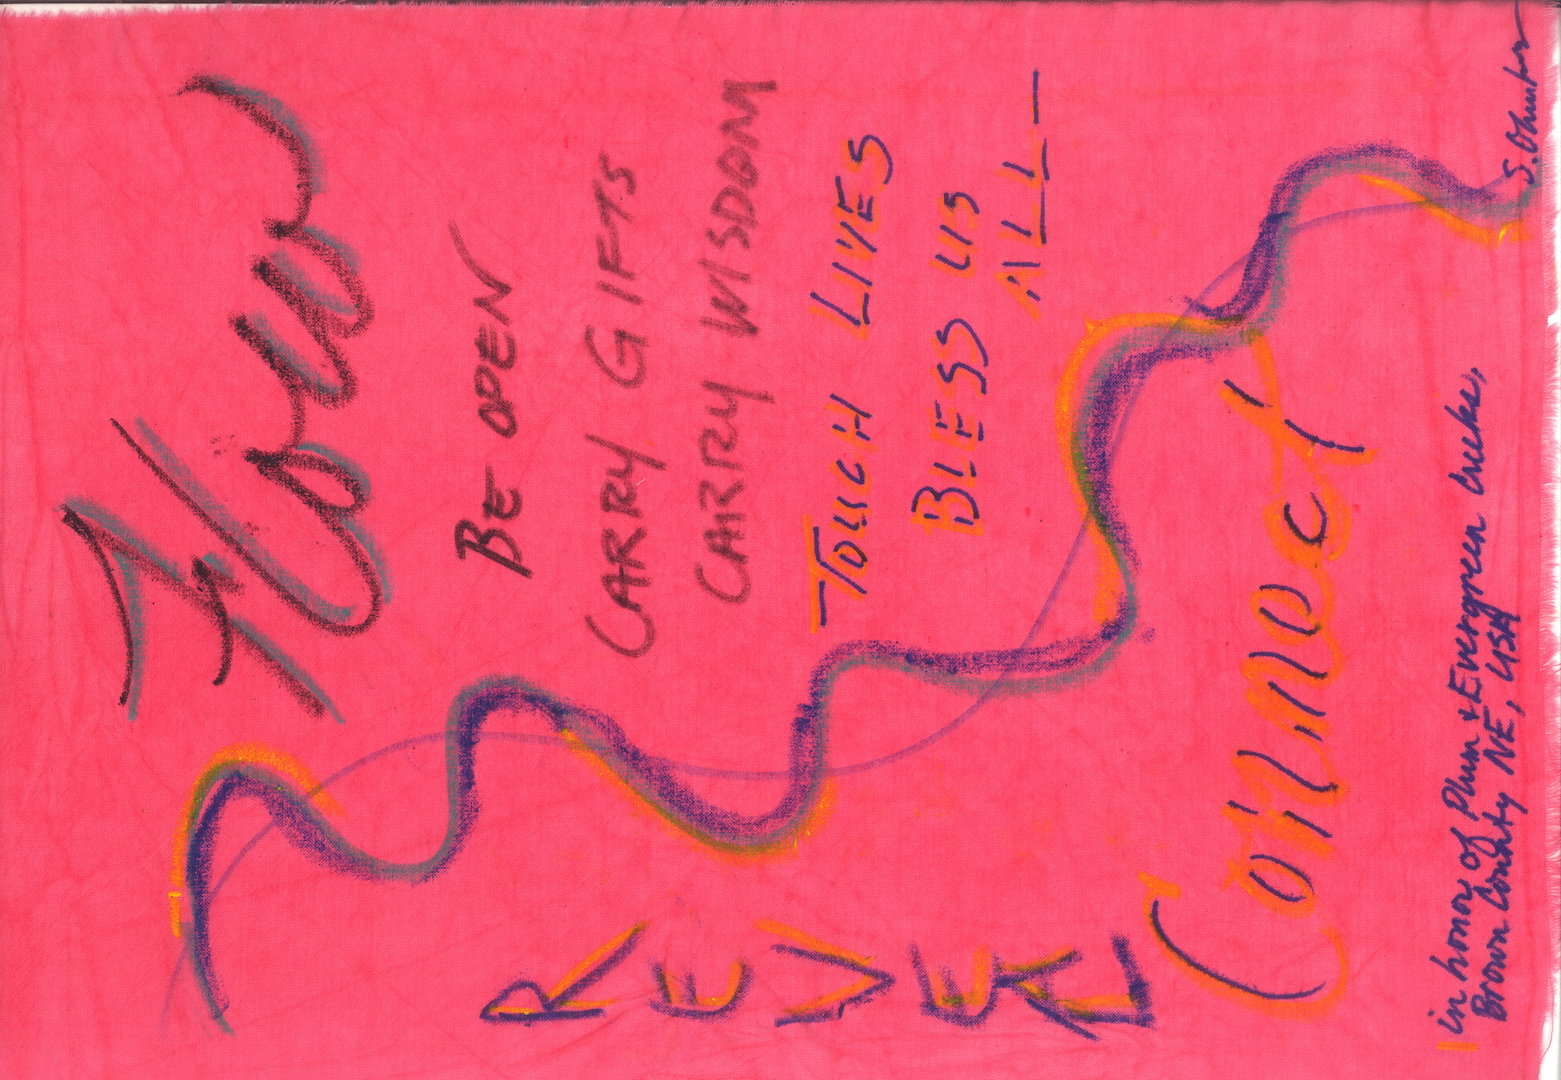 Flow
BE OPEN
CARRY GIFTS
CARRY WISDOM
TOUCH LIVES
BLESS US
ALL
REVEAL
Connect
in honor of Plum & Evergreen creeks,
Brown County NE, USA